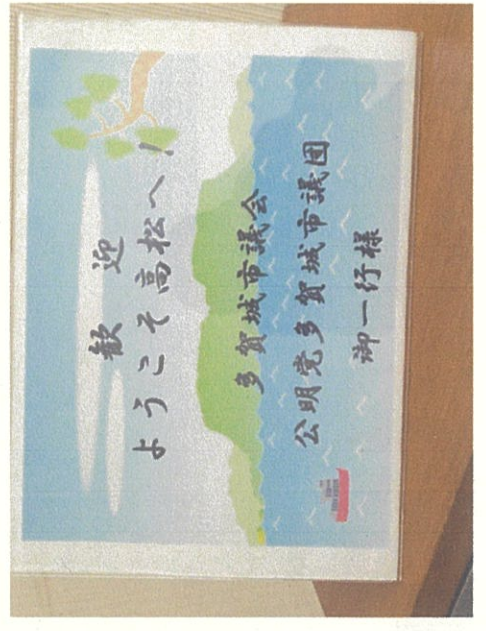 歓迎
ようこそ高松へ!
多賀城市議会
公明党多賀城市議団
御一行様